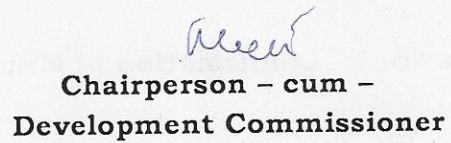 Chairperson – cum –
Development Commissioner